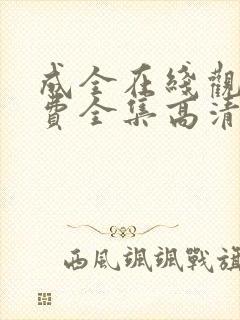 成全在綫觀
費全集高清
西風颯颯戰旗